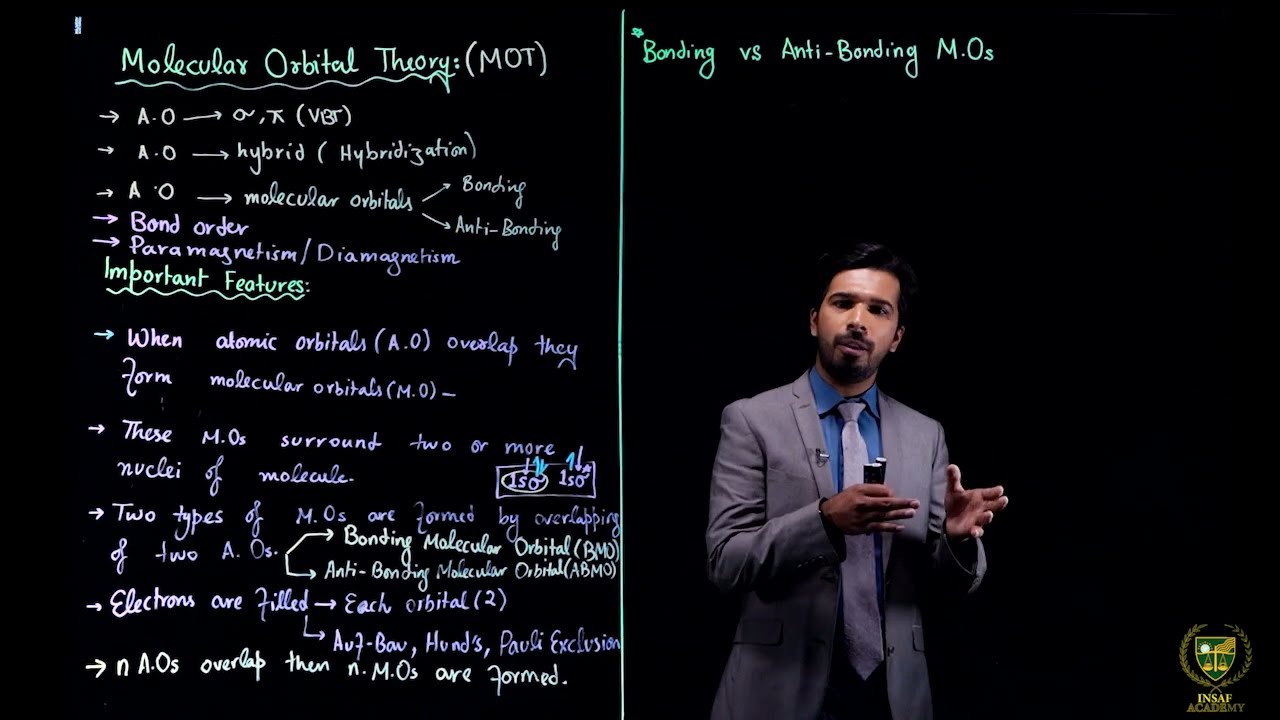 Molecular Orbital Theory: (MOT)
→ A.O → σ, π (VBT)
→ A.O → hybrid (Hybridization)
→ A.O → molecular orbitals
Bonding
Anti-Bonding
→ Bond order
→ Paramagnetism/Diamagnetism
Important Features:
→ When atomic orbitals (A.O) overlap they
form molecular orbitals (M.O) –
→ These M.Os surround two or more
nuclei of molecule.
1sσ 1sσ*
→ Two types of M.Os are formed by overlapping
of two A.Os.
→ Bonding Molecular Orbital (BMO)
→ Anti-Bonding Molecular Orbital (ABMO)
→ Electrons are filled → Each orbital (2)
→ Auf-Bau, Hund's, Pauli Exclusion
→ n A.Os overlap then n.M.Os are formed.
*Bonding vs Anti-Bonding M.Os
INSAF
ACADEMY